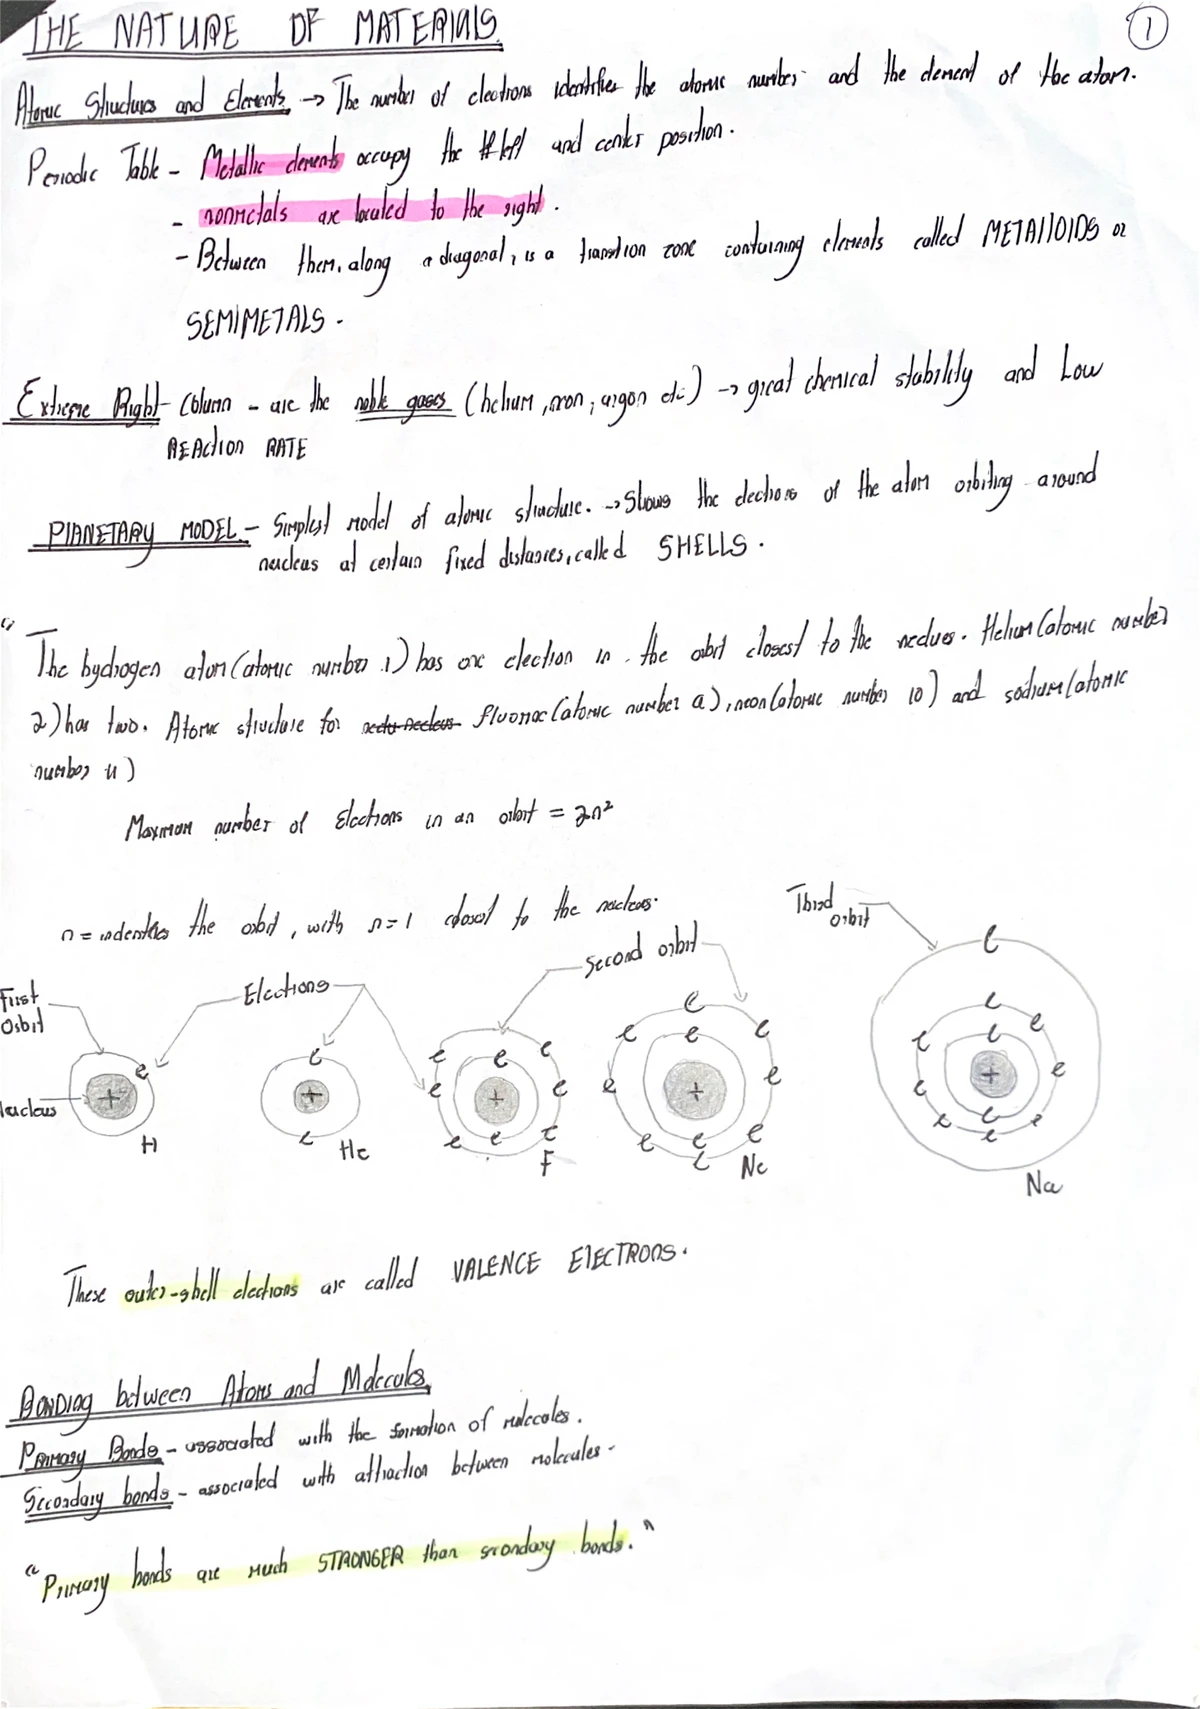 THE NATURE OF MATERIALS.
1
Atomic Structures and Elements → The number of electrons identifies the atomic number and the element of the atom.
Periodic Table - Metallic elements occupy the left and center position.
- nonmetals are located to the right.
- Between them, along a diagonal, is a transition zone containing elements called METALLOIDS or
SEMIMETALS.
Extreme Right - Column - are the noble gases (helium, neon, argon etc.) → great chemical stability and Low
REACTION RATE
PLANETARY MODEL - Simplest model of atomic structure. → Shows the electrons of the atom orbiting around
nucleus at certain fixed distances, called SHELLS.
" The hydrogen atom (atomic number 1) has one electron in the orbit closest to the nucleus. Helium (atomic number
2) has two. Atomic structure for fluorine (atomic number 9), neon (atomic number 10) and sodium (atomic
number 11)
Maximum number of Electrons in an orbit = 2n²
n = indentifies the orbit, with n=1 closest to the nucleus.
Third
orbit
Second orbit
Electrons
First
Orbit
Nucleus
e
+
H
e
+
e
He
e e e
e e
+
e e e
F
e
e e e
e e
+
e e e
e
Ne
e
e
e e e
e e
+
e e e
e
Na
These outer-shell electrons are called VALENCE ELECTRONS.
BONDING between Atoms and Molecules.
Primary Bonds - associated with the formation of molecules.
Secondary bonds - associated with attraction between molecules.
"Primary bonds are much STRONGER than secondary bonds."